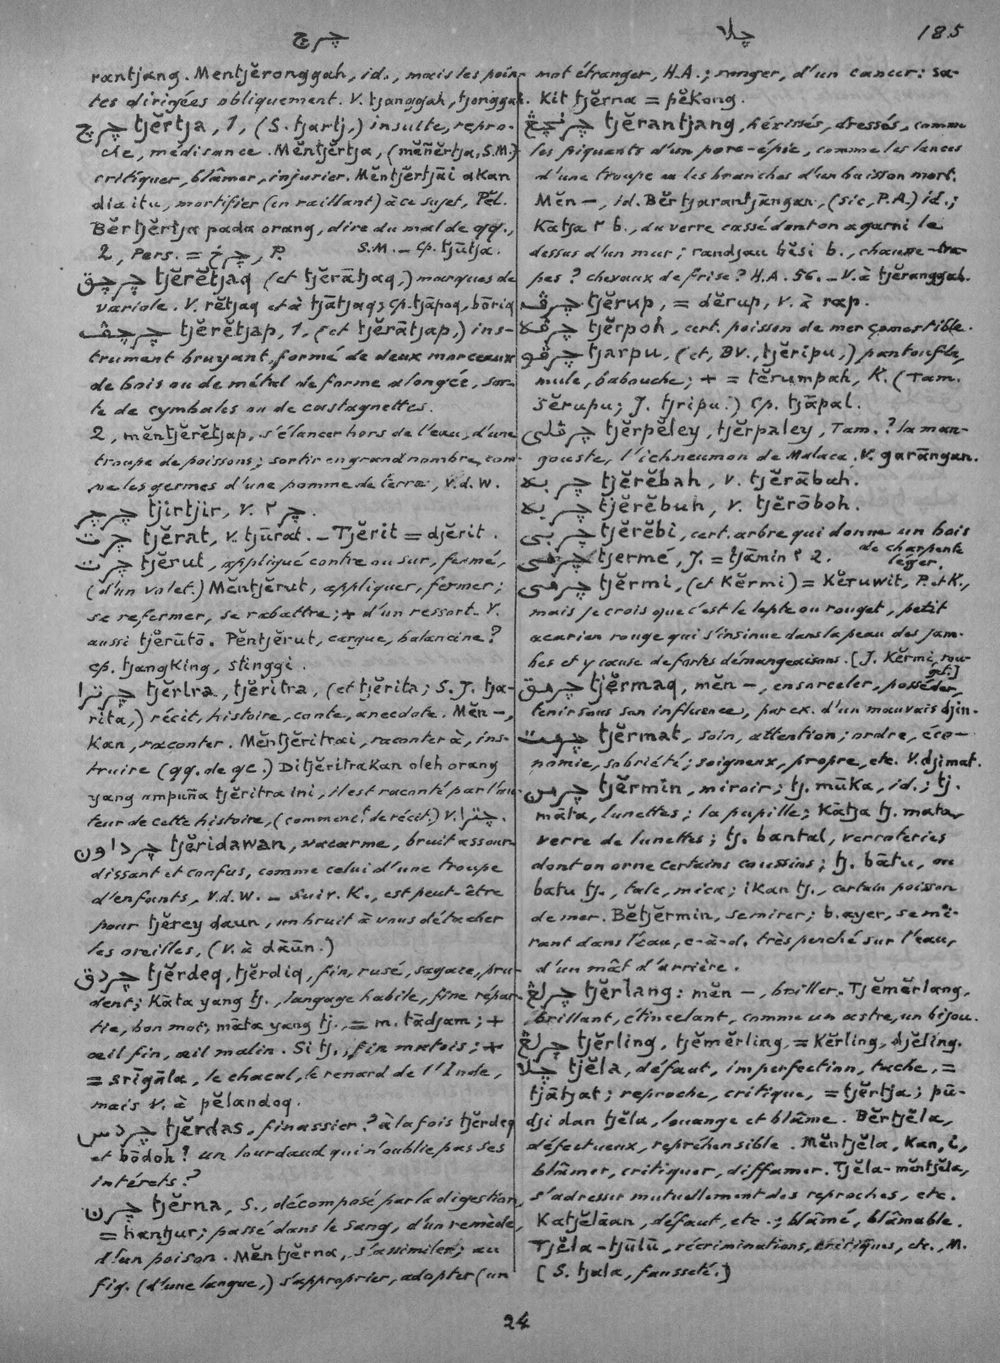 چرچ
چلا
185
rantjang. Mentjĕronggah, id., mais les poin-
tes dirigées obliquement. V. tjanggah, tjonggah.
چرچ tjĕrtja, 1, (S. tjartj,) insulte, repro-
che, médisance. Mĕntjĕrtja, (mĕñĕrtja, S.M.)
critiquer, blâmer, injurier. Mĕntjĕrtjāi akan
dia itu, mortifier (en raillant) à ce sujet, Pĕl.
Bĕrtjĕrtja pada orang, dire du mal de qq.,
2, Pers. = چرخ, P. S.M. _ Cp. tjūtja.
چرچق tjĕrĕtjaq (et tjĕrātjaq,) marques de
variole. V. rĕtjaq et à tjātjaq; cp. tjāpoq, bōriq
چرچڤ tjĕrĕtjap, 1, (et tjĕrātjap,) ins-
trument bruyant, formé de deux morceaux
de bois ou de métal de forme alongée, sor-
te de cymbales ou de castagnettes.
2, mĕntjĕrĕtjap, s'élancer hors de l'eau, d'une
troupe de poissons; sortir en grand nombre, com-
me les germes d'une pomme de terre, V.d.W.
چرچر tjirtjir, V. چر ٢.
چرت tjĕrat, V. tjūrat. _ Tjĕrit = djĕrit.
چرت tjĕrut, appliqué contre ou sur, fermé,
(d'un volet.) Mĕntjĕrut, appliquer, fermer;
se refermer, se rabattre; + d'un ressort. V.
aussi tjĕrūtō. Pĕntjĕrut, cargue, balancine?
cp. tjangking, stinggi.
چرترا tjĕrtra, tjĕritra, (et tjĕrita; S. J. tja-
rita,) récit, histoire, conte, anecdote. Mĕn-,
Kan, raconter. Mĕntjĕritrai, raconter à, ins-
truire (qq. de qc.) Ditjĕritrakan oleh orang
yang ampuña tjĕritra ini, il est raconté par l'au-
teur de cette histoire, (commenc.t de récit.) V. چترا.
چرداون tjĕridawan, vacarme, bruit assour-
dissant et confus, comme celui d'une troupe
d'enfants, V.d.W. _ Suiv. K., est peut-être
pour tjĕrey daun, un bruit à vous détacher
les oreilles, (V. à dāūn.)
چردق tjĕrdeq, tjĕrdiq, fin, rusé, sagace, pru-
dent; Kāta yang tj., langage habile, fine répar-
tie, bon mot; māta yang tj., = m. tādjam; +
œil fin, œil malin. Si tj., fin matois; +
= srīgāla, le chacal, le renard de l'Inde,
mais V. à pĕlandoq.
چردس tjĕrdas, finassier? à la fois tjĕrdeq
et bōdoh? un lourdaud qui n'oublie pas ses
intérets?
چرن tjĕrna, S., décomposé par la digestion,
= hantjur; passé dans le sang, d'un remède,
d'un poison. Mĕntjĕrna, s'assimiler; au
fig. (d'une langue,) s'approprier, adopter (un
mot étranger, H.A.; ronger, d'un cancer: sa-
kit tjĕrna = pĕkong.
چرنچڠ tjĕrantjang, hérissés, dressés, comme
les piquants d'un porc-épic, comme les lances
d'une troupe ou les branches d'un buisson mort.
Mĕn-, id. Bĕrtjarantjāngan, (sic, P.A.) id.;
Kātja ٢ b., du verre cassé dont on a garni le
dessus d'un mur; randjau bĕsi b., chausse-tra-
pes? chevaux de frise? H.A. 56. _ V. à tjĕranggah.
چرڤ tjĕrup, = dĕrup, V. à rap.
چرڤه tjĕrpoh, cert. poisson de mer comestible.
چرڤو tjarpu, (et, BV., tjĕripu,) pantoufle,
mule, babouche; + = tĕrumpah, K. (Tam.
sĕrupu; J. tjripu.) Cp. tjāpal.
چرڤلي tjĕrpĕley, tjĕrpaley, Tam.? la man-
gouste, l'ichneumon de Malaca. V. garāngan.
چربه tjĕrĕbah, V. tjĕrābah.
چربه tjĕrĕbuh, V. tjĕrōboh.
چربي tjĕrĕbi, cert. arbre qui donne un bois
de charpente
léger.
چرمي tjermé, J. = tjāmin ٢ 2.
چرمي tjĕrmi, (et Kĕrmi) = Kĕruwit, P. et K.,
mais je crois que c'est le lepte ou rouget, petit
acarien rouge qui s'insinue dans la peau des jam-
bes et y cause de fortes démangeaisons. [J. Kĕrmi, rou-
get.]
چرمق tjĕrmaq, mĕn-, ensorceler, posséder,
tenir sous son influence, par ex. d'un mauvais djin.
چرمت tjĕrmat, soin, attention; ordre, éco-
nomie, sobriété; soigneux, propre, etc. V. djimat.
چرمن tjĕrmin, miroir; tj. mūka, id.; tj.
māta, lunettes; la pupille; Kātja tj. mata,
verre de lunettes; tj. bantal, verroteries
dont on orne certains coussins; tj. bātu, ou
batu tj., talc, mica; ikan tj., certain poisson
de mer. Bĕtjĕrmin, se mirer; b. ayer, se mi-
rant dans l'eau, c-à-d. très penché sur l'eau,
d'un mât d'arrière.
چرلڠ tjĕrlang: mĕn -, briller. Tjĕmĕrlang,
brillant, étincelant, comme un astre, un bijou.
چرلڠ tjĕrling, tjĕmĕrling, = Kĕrling, djĕling.
چلا tjĕla, défaut, imperfection, tache, =
tjātjat; reproche, critique, = tjĕrtja; pū-
dji dan tjĕla, louange et blâme. Bĕrtjĕla,
défectueux, repréhensible. Mĕntjĕla, Kan, i,
blâmer, critiquer, diffamer. Tjĕla-mĕntjĕla,
s'adresser mutuellement des reproches, etc.
Katjĕlāan, défaut, etc.; blâmé, blâmable.
Tjĕla-tjūlū, récriminations, critiques, etc., M.
[S. tjala, fausseté.]
24